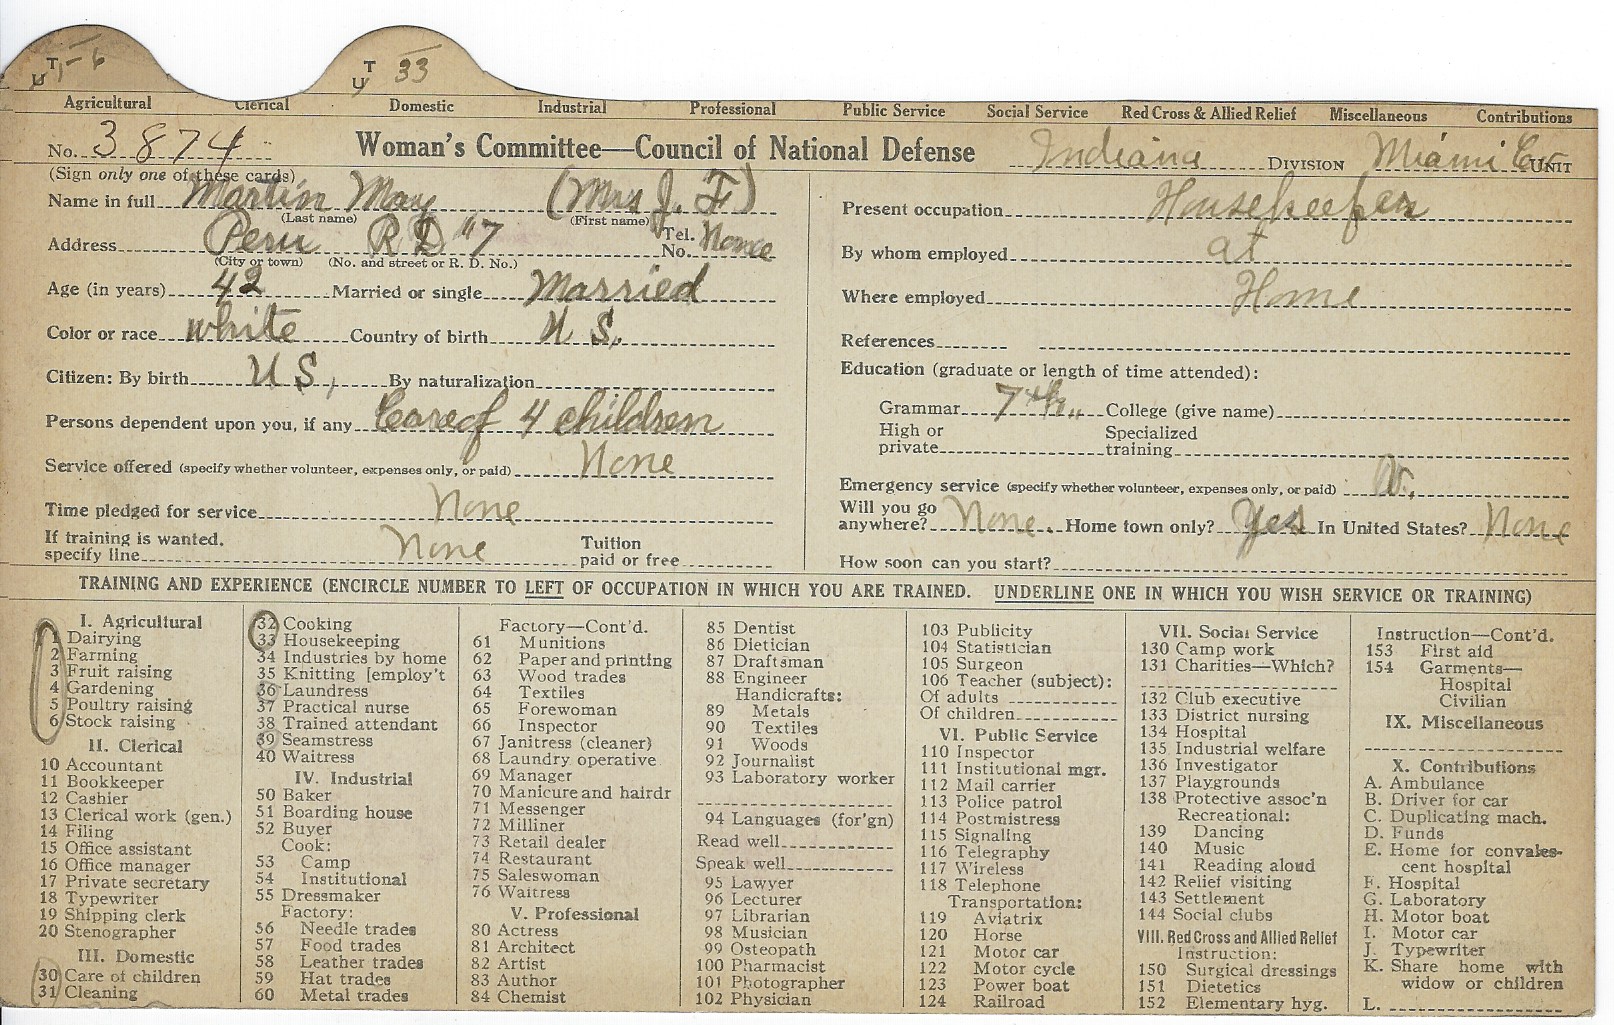 UT 1-6 UT 33
Agricultural Clerical Domestic Industrial Professional Public Service Social Service Red Cross & Allied Relief Miscellaneous Contributions
No. 3874 Woman's Committee—Council of National Defense Indiana DIVISION Miami Co. UNIT
(Sign only one of these cards)
Name in full Martin May (Mrs J. F)
(Last name) (First name)
Address Peru R D "7 Tel. No. None
(City or town) (No. and street or R. D. No.)
Age (in years) 42 Married or single Married
Color or race white Country of birth U S.
Citizen: By birth U S, By naturalization
Persons dependent upon you, if any Care of 4 children
Service offered (specify whether volunteer, expenses only, or paid) None
Time pledged for service None
If training is wanted, specify line None Tuition paid or free
Present occupation Housekeeper
By whom employed at
Where employed Home
References
Education (graduate or length of time attended):
Grammar 7th,, College (give name)
High or private Specialized training
Emergency service (specify whether volunteer, expenses only, or paid) V.
Will you go anywhere? None. Home town only? Yes In United States? None
How soon can you start?
TRAINING AND EXPERIENCE (ENCIRCLE NUMBER TO LEFT OF OCCUPATION IN WHICH YOU ARE TRAINED. UNDERLINE ONE IN WHICH YOU WISH SERVICE OR TRAINING)
I. Agricultural
1 Dairying
2 Farming
3 Fruit raising
4 Gardening
5 Poultry raising
6 Stock raising
II. Clerical
10 Accountant
11 Bookkeeper
12 Cashier
13 Clerical work (gen.)
14 Filing
15 Office assistant
16 Office manager
17 Private secretary
18 Typewriter
19 Shipping clerk
20 Stenographer
III. Domestic
30 Care of children
31 Cleaning
32 Cooking
33 Housekeeping
34 Industries by home
35 Knitting [employ't
36 Laundress
37 Practical nurse
38 Trained attendant
39 Seamstress
40 Waitress
IV. Industrial
50 Baker
51 Boarding house
52 Buyer
Cook:
53 Camp
54 Institutional
55 Dressmaker
Factory:
56 Needle trades
57 Food trades
58 Leather trades
59 Hat trades
60 Metal trades
Factory—Cont'd.
61 Munitions
62 Paper and printing
63 Wood trades
64 Textiles
65 Forewoman
66 Inspector
67 Janitress (cleaner)
68 Laundry operative
69 Manager
70 Manicure and hairdr
71 Messenger
72 Milliner
73 Retail dealer
74 Restaurant
75 Saleswoman
76 Waitress
V. Professional
80 Actress
81 Architect
82 Artist
83 Author
84 Chemist
85 Dentist
86 Dietician
87 Draftsman
88 Engineer
Handicrafts:
89 Metals
90 Textiles
91 Woods
92 Journalist
93 Laboratory worker
94 Languages (for'gn)
Read well
Speak well
95 Lawyer
96 Lecturer
97 Librarian
98 Musician
99 Osteopath
100 Pharmacist
101 Photographer
102 Physician
103 Publicity
104 Statistician
105 Surgeon
106 Teacher (subject):
Of adults
Of children
VI. Public Service
110 Inspector
111 Institutional mgr.
112 Mail carrier
113 Police patrol
114 Postmistress
115 Signaling
116 Telegraphy
117 Wireless
118 Telephone
Transportation:
119 Aviatrix
120 Horse
121 Motor car
122 Motor cycle
123 Power boat
124 Railroad
VII. Social Service
130 Camp work
131 Charities—Which?
132 Club executive
133 District nursing
134 Hospital
135 Industrial welfare
136 Investigator
137 Playgrounds
138 Protective assoc'n
Recreational:
139 Dancing
140 Music
141 Reading aloud
142 Relief visiting
143 Settlement
144 Social clubs
VIII. Red Cross and Allied Relief
Instruction:
150 Surgical dressings
151 Dietetics
152 Elementary hyg.
Instruction—Cont'd.
153 First aid
154 Garments—
Hospital
Civilian
IX. Miscellaneous
X. Contributions
A. Ambulance
B. Driver for car
C. Duplicating mach.
D. Funds
E. Home for convales-
cent hospital
F. Hospital
G. Laboratory
H. Motor boat
I. Motor car
J. Typewriter
K. Share home with
widow or children
L.